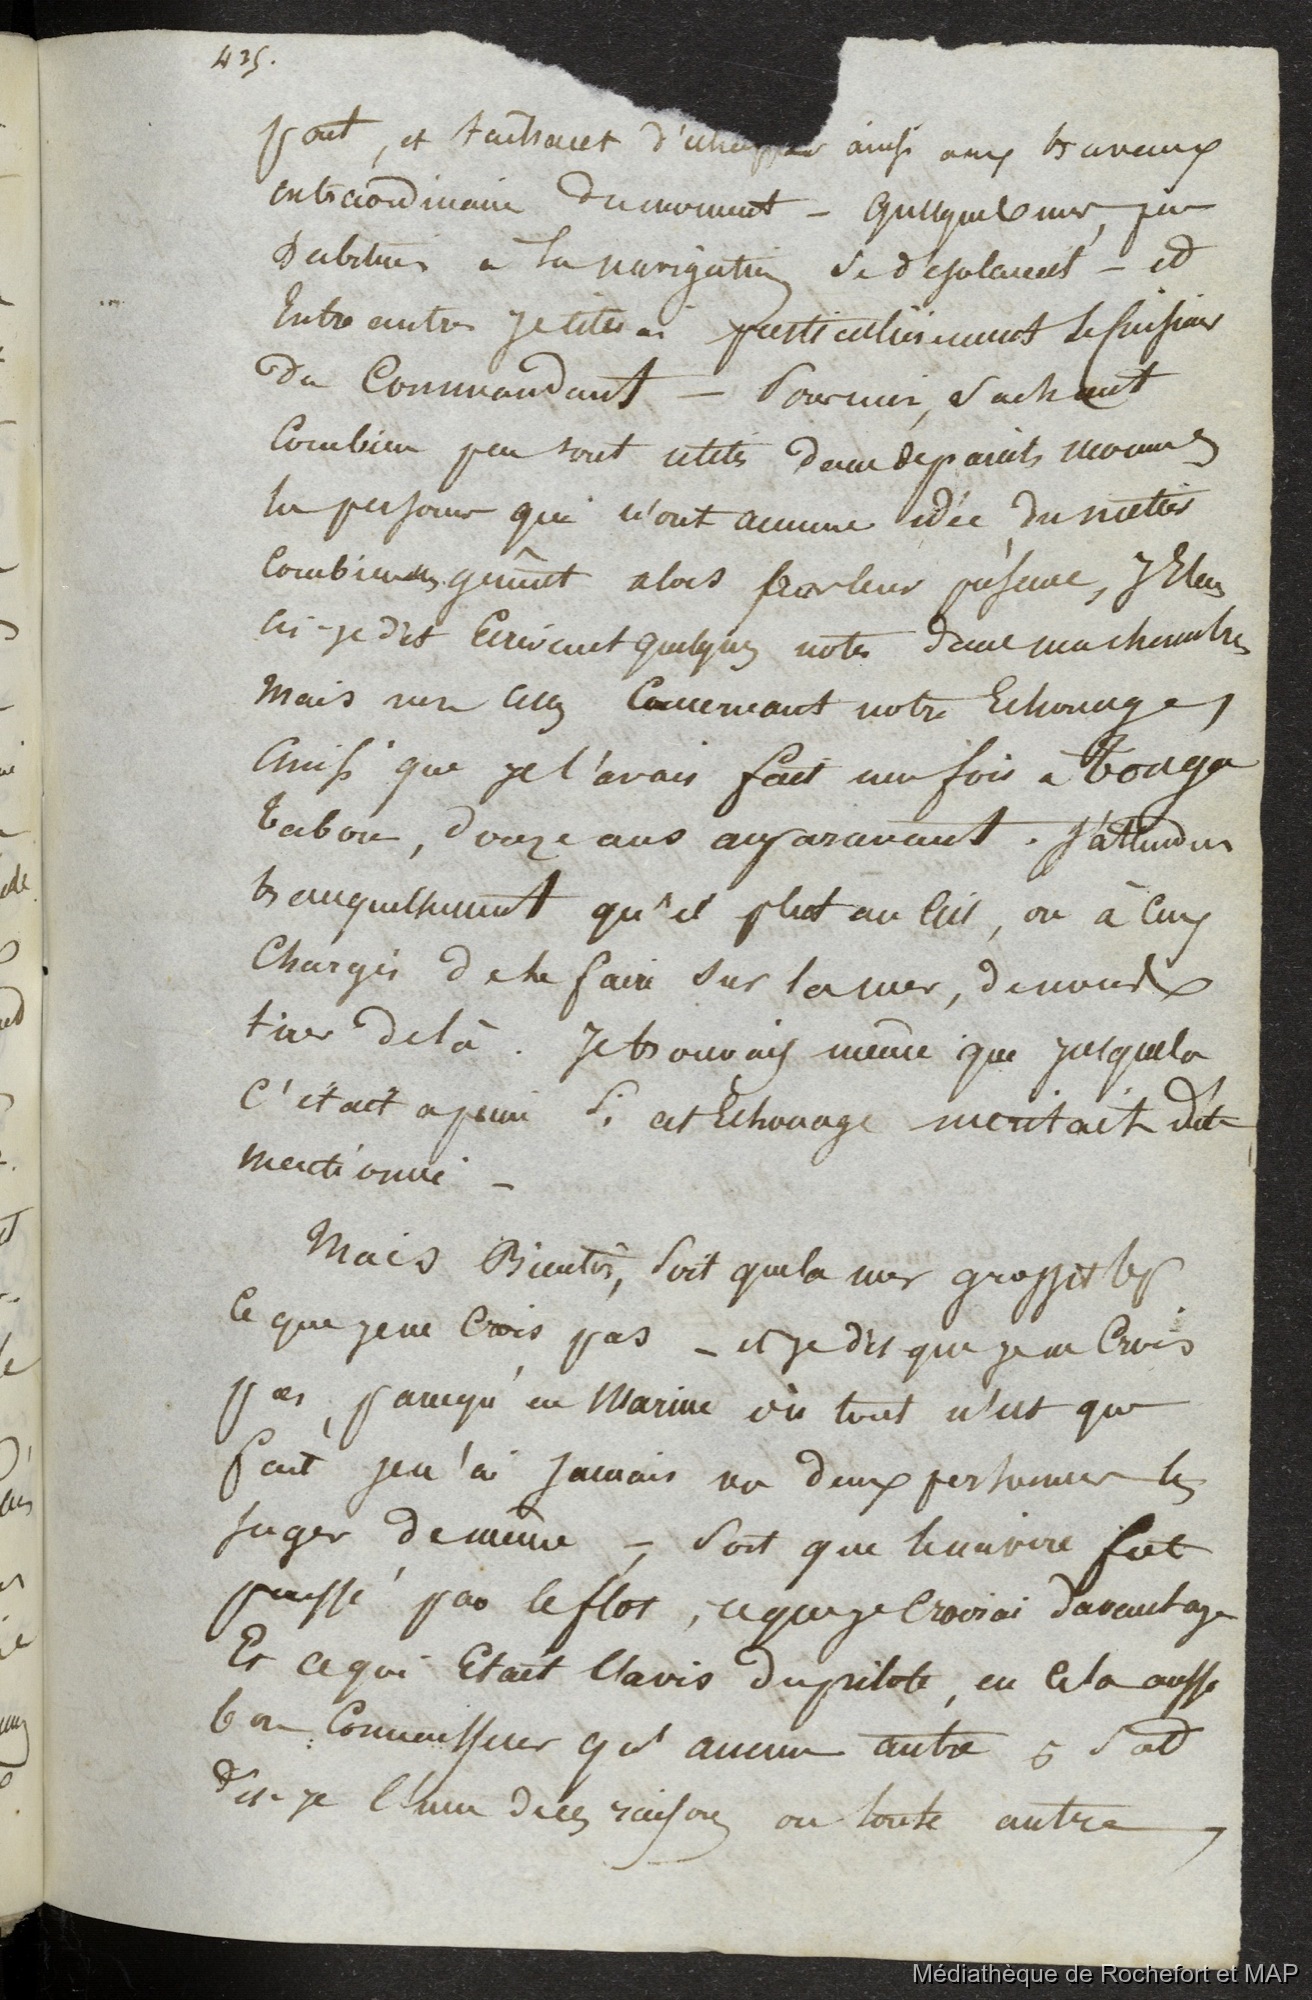 435.
pont, et tachant d'échapper ainsi aux travaux
extraordinaire du moment – quelques uns, peu
habitués à la navigation se désolaient – et
Entre autres je citerai particulièrement le Cuisinier
du Commandant – Pour moi, sachant
Combien peu sont utiles dans de pareils momens
les personnes qui n'ont aucune idée du métier
Combien elles gênent alors par leur présence, J'Etais
ai-je dit Ecrivant quelques notes dans ma chambre
Mais non celles Concernant notre Echouage,
Ainsi que je l'avais fait une fois à Tonga
Tabou, douze ans auparavant. J'attendis
tranquillement qu'il plut au Ciel, ou à Ceux
Chargés de le faire sur la mer, de nous
tirer de là. Je trouvais même que jusque la
C'était a peine si cet Echouage méritait d'être
mentionné –
Mais Bientôt, soit que la mer grossit
Ce que je ne Crois pas – et je dis que je ne Crois
pas, parcequ'en Marine où tout n'est que
fait je n'ai jamais vu deux personnes les
juger de même –, soit que le navire fut
poussé par le flot, ce que je Croirai davantage
Et ce qui Etait l'avis du pilote, en Cela aussi
bon Connaisseur qu'aucun autre, soit
dis-je l'une de ces raisons ou toute autre,
Médiathèque de Rochefort et MAP